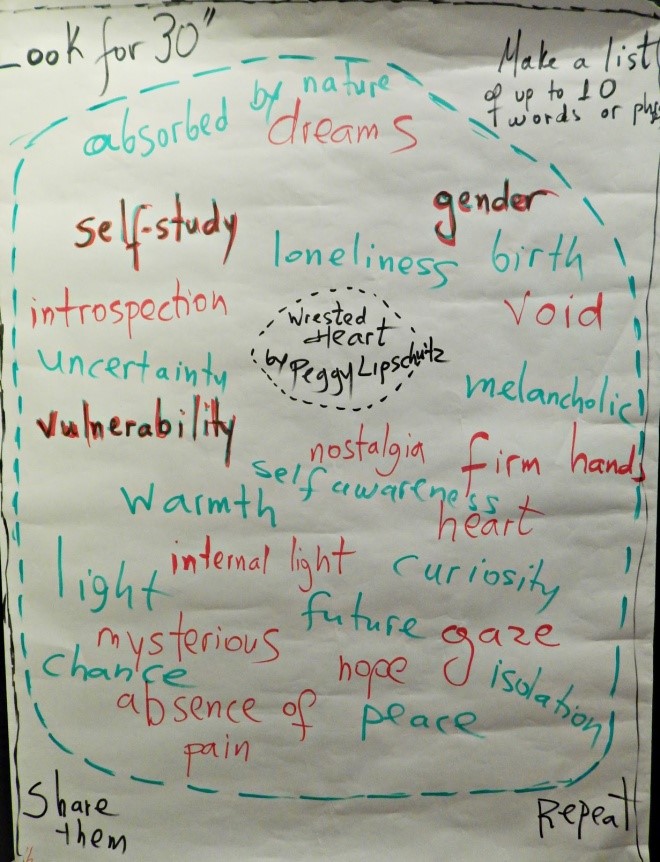 Look for 30"
Make a list
of up to 10
words or phr
absorbed by nature
dreams
self-study
gender
loneliness
birth
introspection
void
Wrested
Heart
by Peggy Lipschutz
uncertainty
melancholic
vulnerability
nostalgia
firm hands
self awareness
warmth
heart
internal light
light
curiosity
future
gaze
mysterious
chance
hope
isolation
absence of
pain
peace
Share
them
Repeat